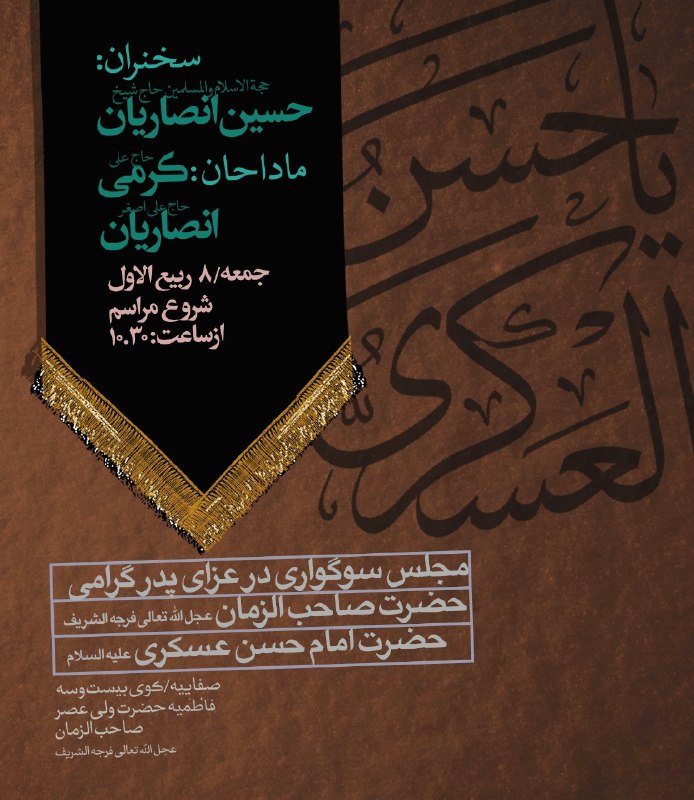 سخنران:
حجة الاسلام والمسلمین حاج شیخ
حسین انصاریان
ماداحان: حاج علی کرمی
حاج علی اصغر
انصاریان
جمعه/ ۸ ربیع الاول
شروع مراسم
از ساعت: ۱۰.۳۰
یا حسن
العسکری
مجلس سوگواری در عزای پدر گرامی
حضرت صاحب الزمان عجل الله تعالی فرجه الشریف
حضرت امام حسن عسکری علیه السلام
صفاییه/کوی بیست و سه
فاطمیه حضرت ولی عصر
صاحب الزمان
عجل الله تعالی فرجه الشریف